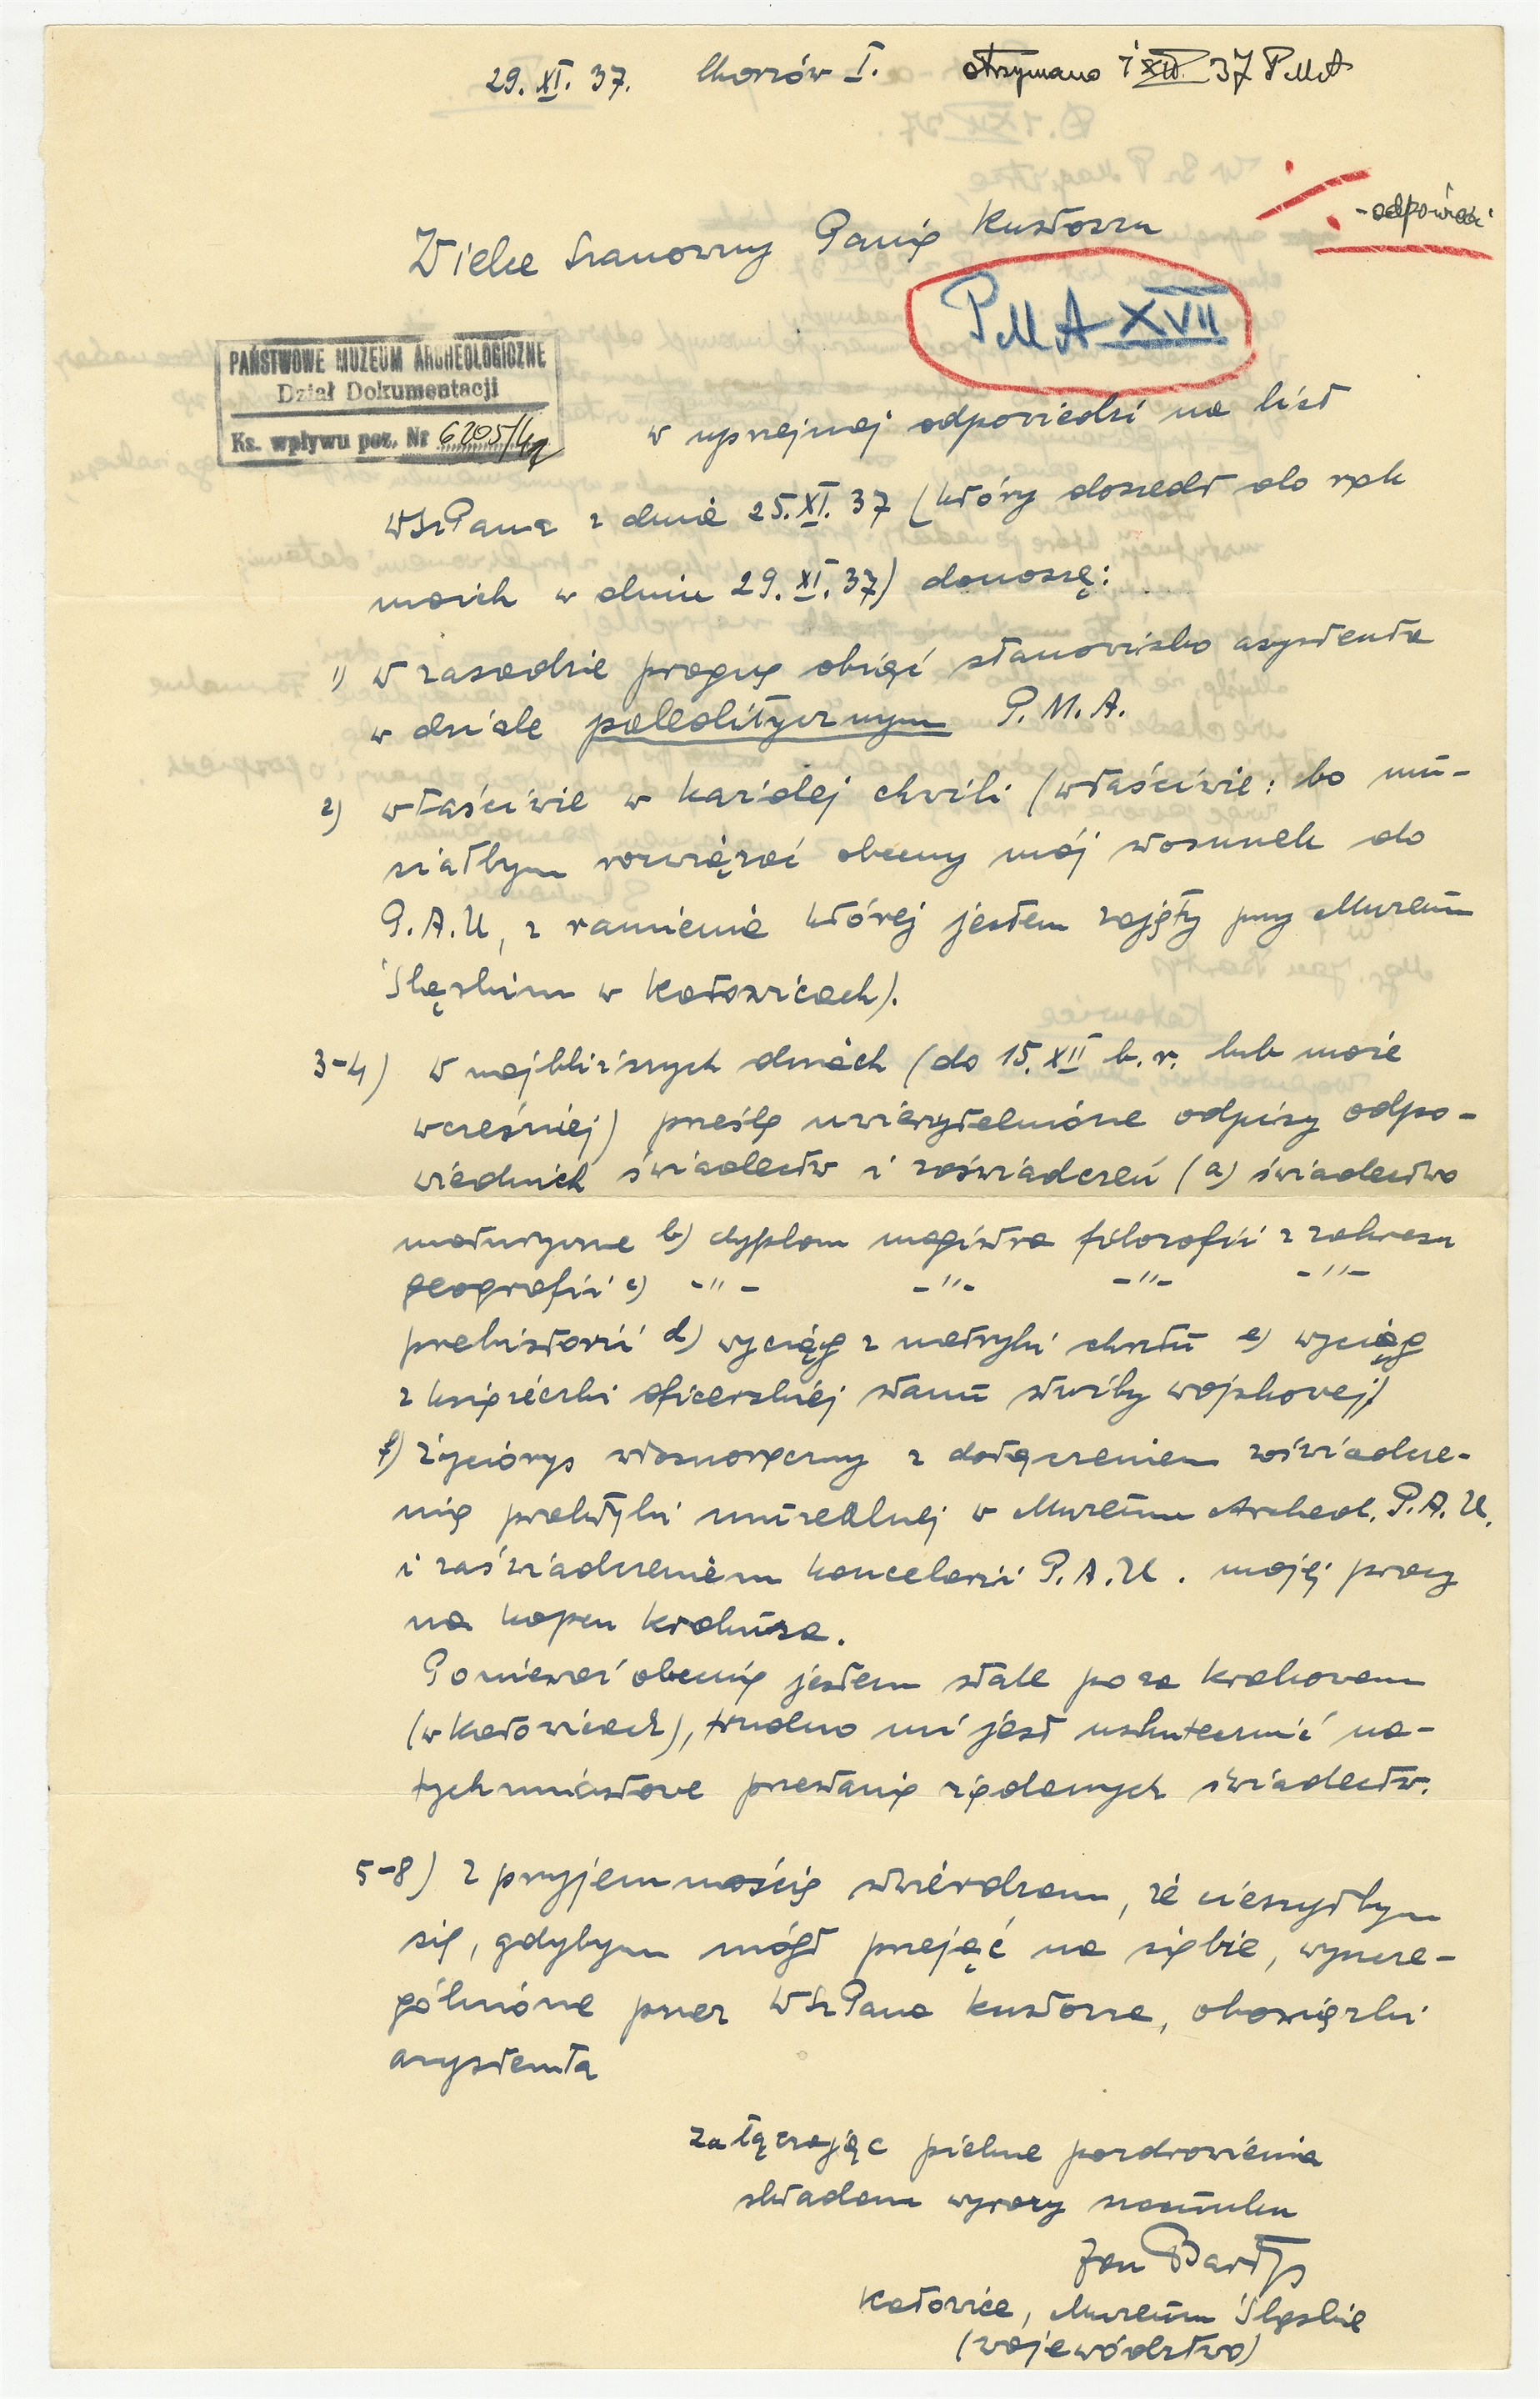 29. XI. 37. Chorzów I. otrzymano 1 XII 37 PMA
- odpowiedź
Wielce Szanowny Panie Kustoszu
PMA XVII
PAŃSTWOWE MUZEUM ARCHEOLOGICZNE
Dział Dokumentacji
Ks. wpływu poz. Nr 6205/49
w uprzejmej odpowiedzi na list
WSzPana z dnia 25. XI. 37 (który doszedł do rąk
moich w dniu 29. XI. 37) donoszę:
1) w zasadzie pragnę objąć stanowisko asystenta
w dziale paleolitycznym P. M. A.
2) właściwie w każdej chwili (właściwie: bo mu-
siałbym rozwiązać obecny mój stosunek do
P. A. U, z ramienia której jestem zajęty przy Muzeum
Śląskim w Katowicach).
3-4) w najbliższych dniach (do 15. XII b. r. lub może
wcześniej) prześlę uwierzytelnione odpisy odpo-
wiednich świadectw i zaświadczeń (a) świadectwo
maturyczne b) dyplom magistra filozofii z zakresu
geografii c) -"- -"- -"- -"-
prehistorii d) wyciąg z metryki chrztu e) wyciąg
z książeczki oficerskiej stanu służby wojskowej)
f) życiorys własnoręczny z dołączeniem zaświadcze-
nie praktyki muzealnej w Muzeum Archeol. P. A. U.
i zaświadczeniem kancelarii P. A. U. mojej pracy
na kopcu Krakusa.
Ponieważ obecnie jestem stale poza Krakowem
(w Katowicach), trudno mi jest uskutecznić na-
tychmiastowe przesłanie żądanych świadectw.
5-8) z przyjemnością stwierdzam, że cieszyłbym
się, gdybym mógł przejąć na siebie, wyszcze-
gólnione przez WSzPana Kustosza, obowiązki
asystenta
Załączając piękne pozdrowienia
składam wyrazy szacunku
Jan Bartys
Katowice, Muzeum Śląskie
(województwo)